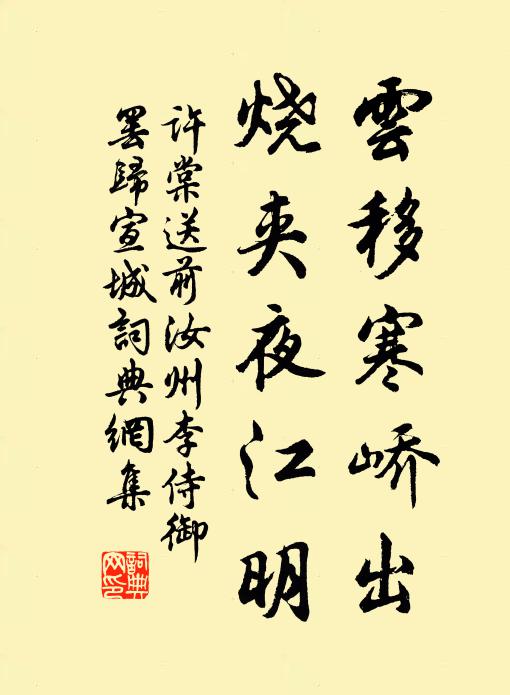 雲移寒峤出
烧夾夜江明
许棠送前汝州李侍御
罢歸宣城詞典網集
詞典網印